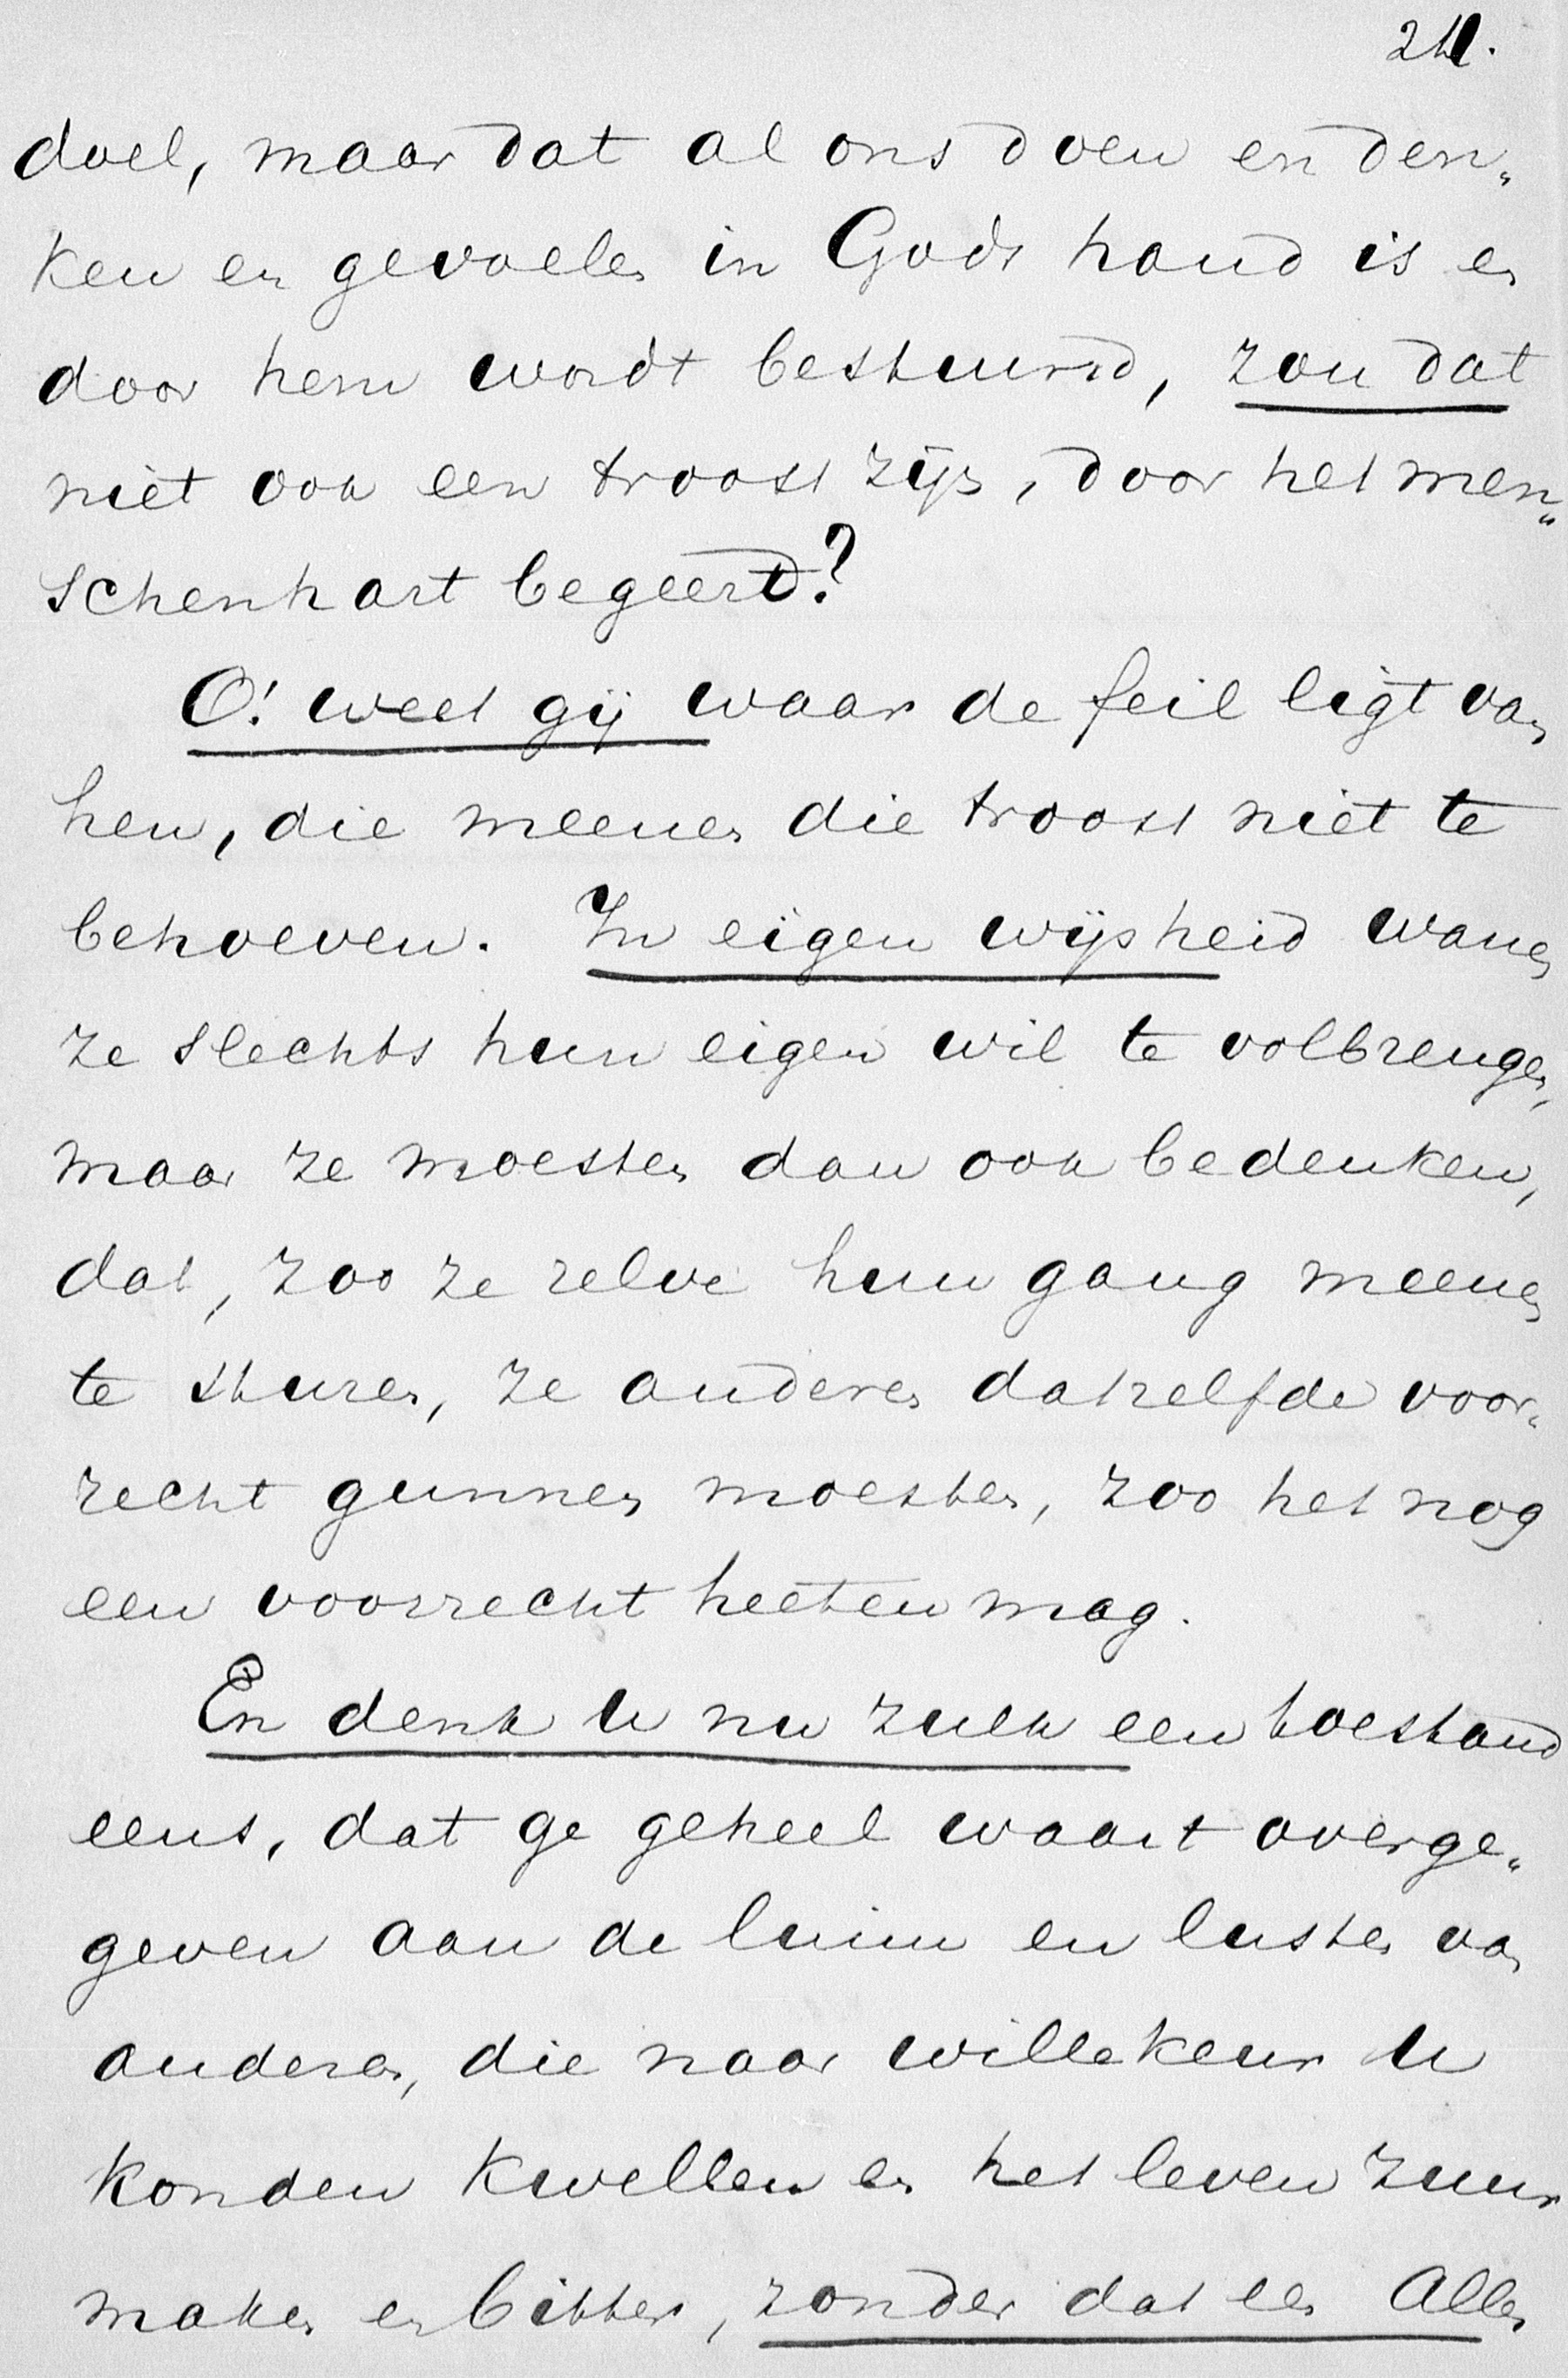 doel, maar dat al ons doen en den„
ken en gevoelen in Gods hand is en
door hem wordt bestuurd, zou dat
niet ook een troost zijn, door het men„
schenhart begeerd?
O! weet gij waar de feil ligt van
hen, die meenen die troost niet te
behoeven. In eigen wijsheid wanen
ze slechts hun eigen wil te volbrengen,
maar ze moesten dan ook bedenken,
dat, zoo ze zelve hun gang meenen
te sturen, ze anderen datzelfde voor„
recht gunnen moesten, zoo het nog
een voorrecht heeten mag.
En denk U nu zulk een toestand
eens, dat ge geheel waart overge„
geven aan de luim en lusten van
anderen, die naar willekeur U
konden kwellen en het leven zuur
maken en bitter, zonder dat een Alles